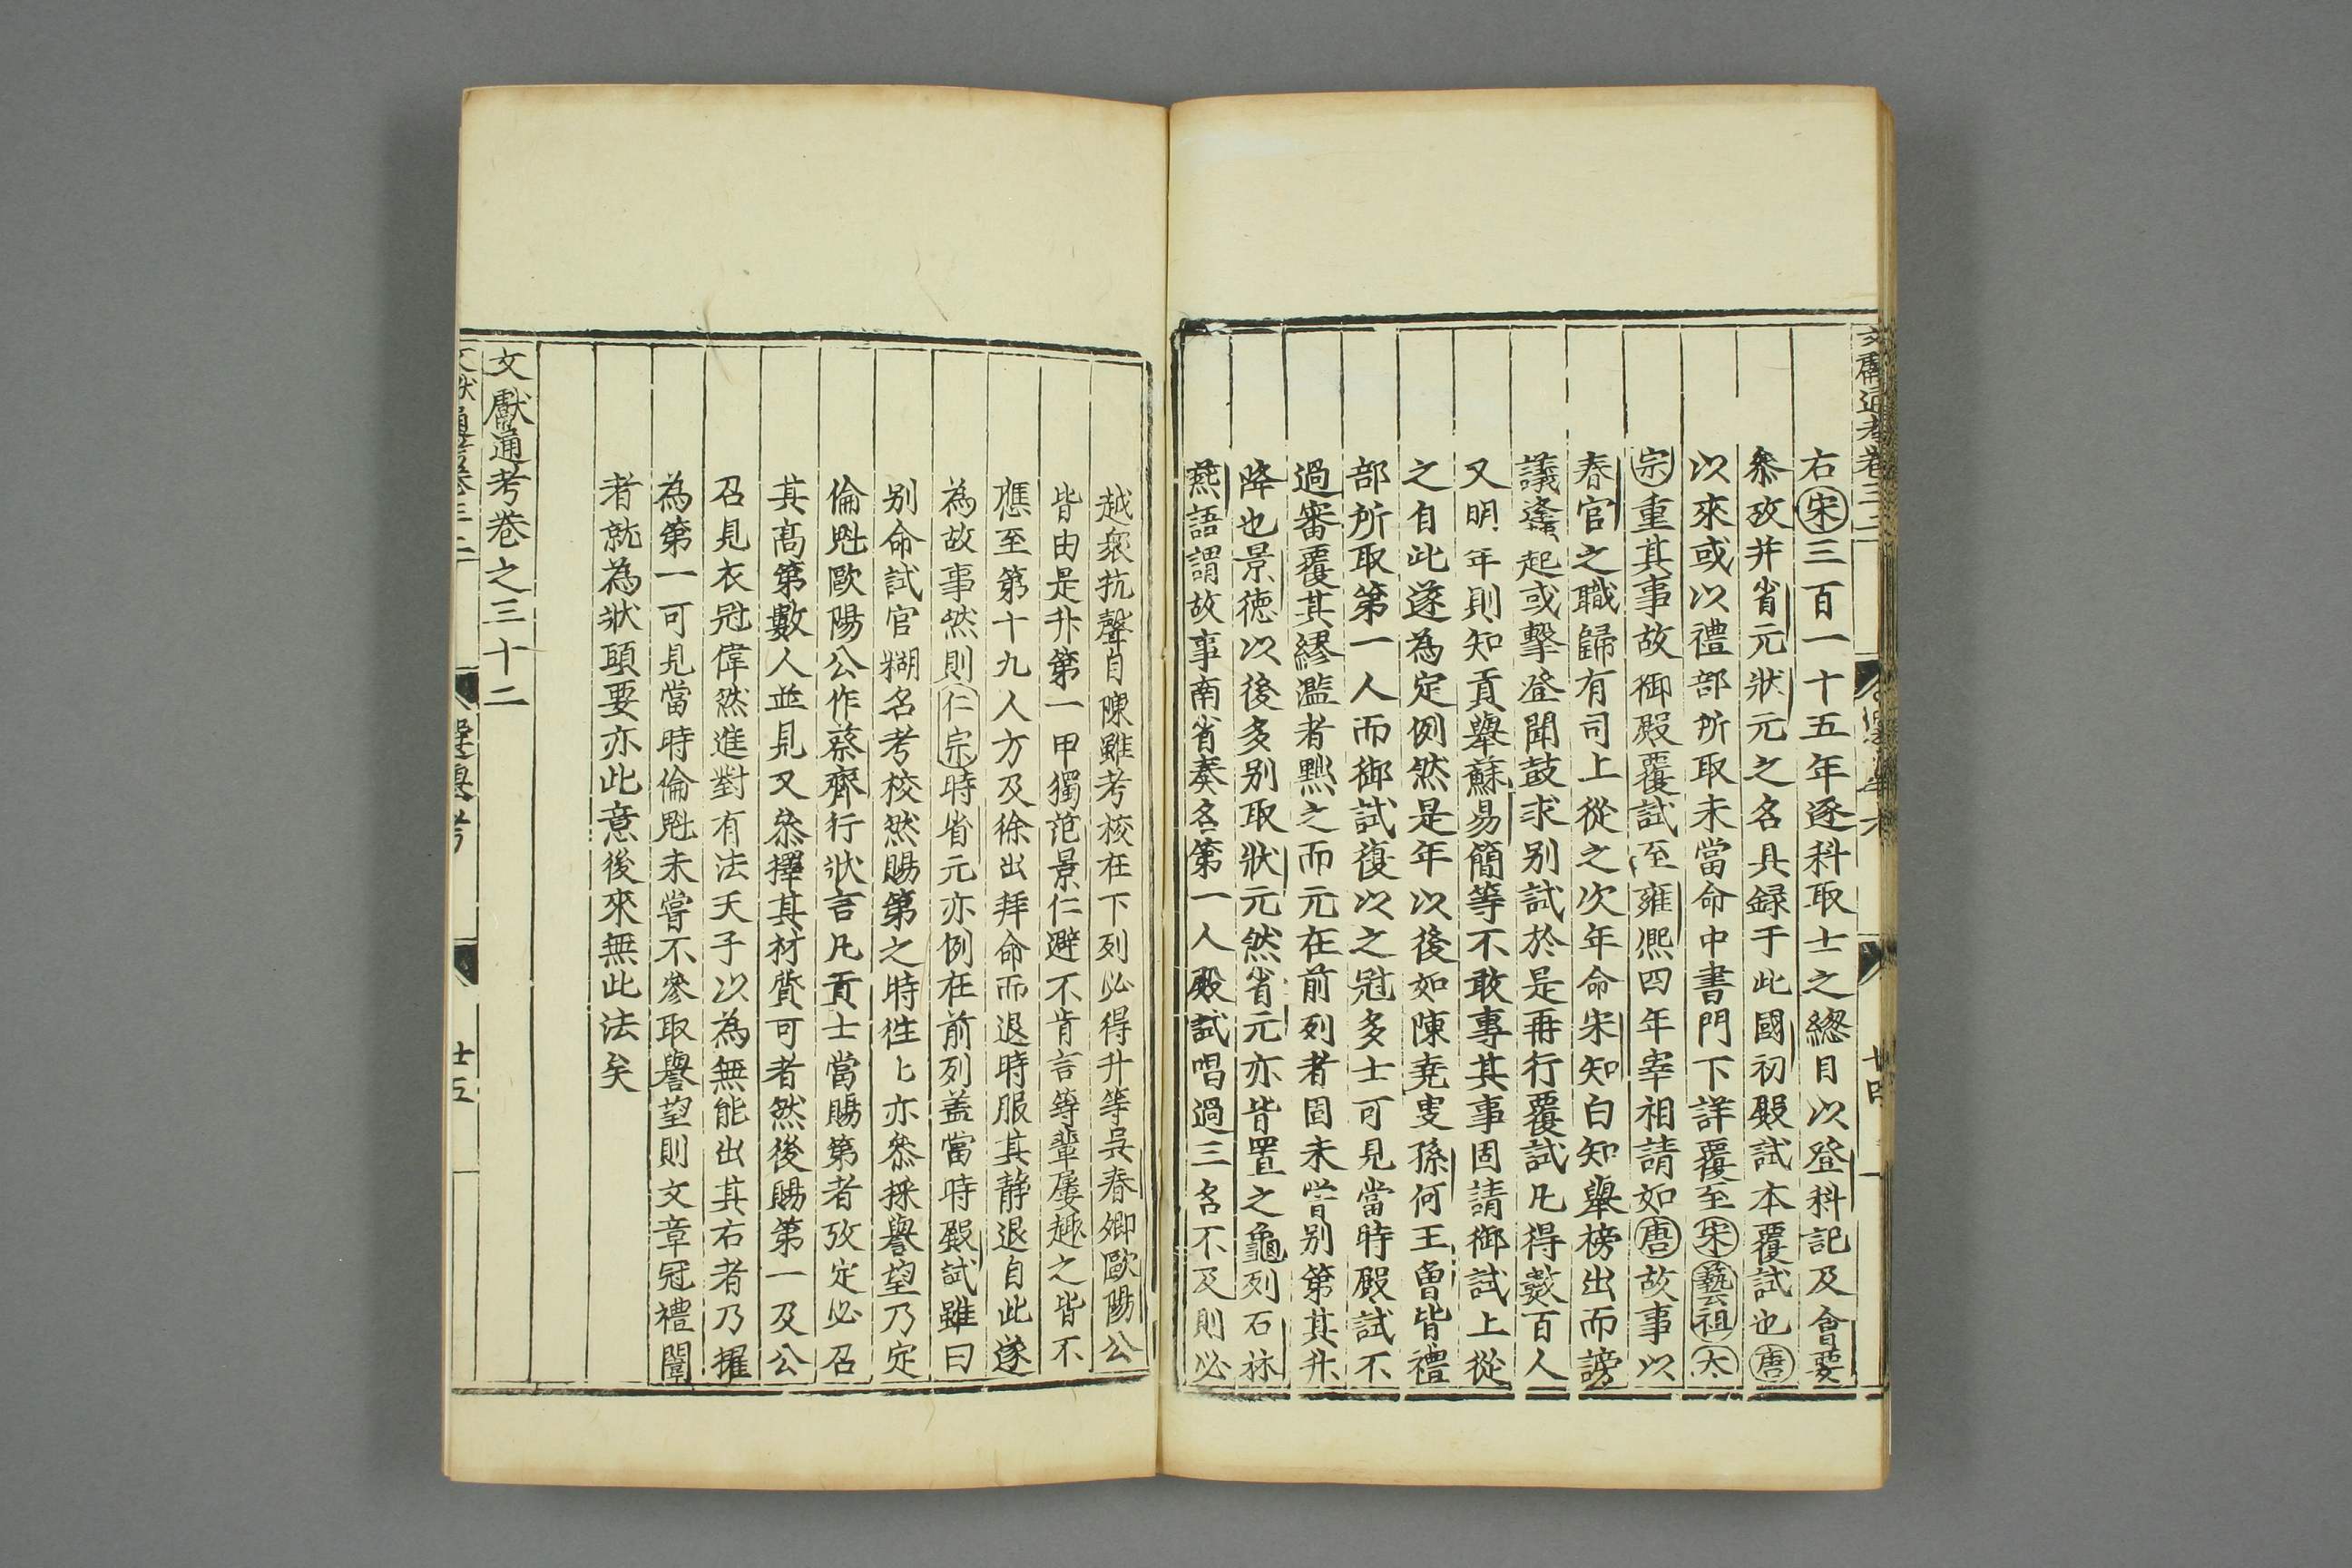 右宋三百一十五年逐科取士之緫目以登科記及會要
叅攷并省元狀元之名具録于此國初殿試本覆試也唐
以來或以禮部所取未當命中書門下詳覆至宋藝祖太
宗重其事故御殿覆試至雍熈四年宰相請如唐故事以
春官之職歸有司上從之次年命宋知白知舉榜出而謗
議逢起或擊登聞鼓求别試於是再行覆試凡得數百人
又明年則知貢舉蘇易簡等不敢專其事固請御試上從
之自此遂為定例然是年以後如陳堯叟孫何王曾皆禮
部所取第一人而御試復以之冠多士可見當時殿試不
過審覆其繆濫者黜之而元在前列者固未甞别第其升
降也景德以後多别取狀元然省元亦皆置之龜列石林
燕語謂故事南省奏名第一人殿試唱過三名不及則必
越衆抗聲自陳雖考校在下列必得升等吴春卿歐陽公
皆由是升第一甲獨范景仁避不肯言等輩屢趣之皆不
應至第十九人方及徐出拜命而退時服其静退自此遂
為故事然則仁宗時省元亦例在前列盖當時殿試雖曰
别命試官糊名考校然賜第之時徃匕亦叅採譽望乃定
倫魁歐陽公作蔡齊行狀言凡貢士當賜第者攷定必召
其高第數人並見又叅擇其材質可者然後賜第一及公
召見衣冠偉然進對有法天子以為無能出其右者乃擢
為第一可見當時倫魁未嘗不參取譽望則文章冠禮闈
者就為狀頭要亦此意後來無此法矣
文獻通考卷之三十二